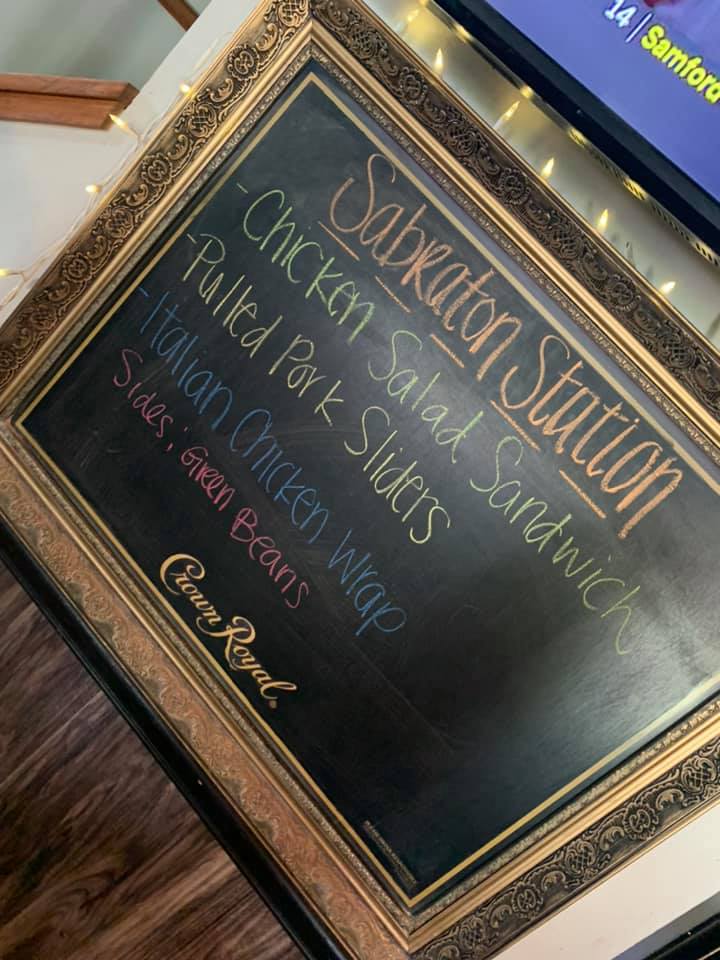 14 | Samford
Sabraton Station
- Chicken Salad Sandwich
- Pulled Pork Sliders
- Italian Chicken Wrap
Sides; Green Beans
Crown Royal